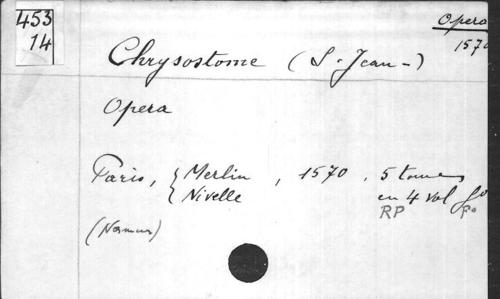 453
14
Opera
1570
Chrysostome (S. Jean-)
Opera
Paris, { Merlin , 1570 . 5 tomes
Nivelle
en 4 vol fo
RP
(Namur)